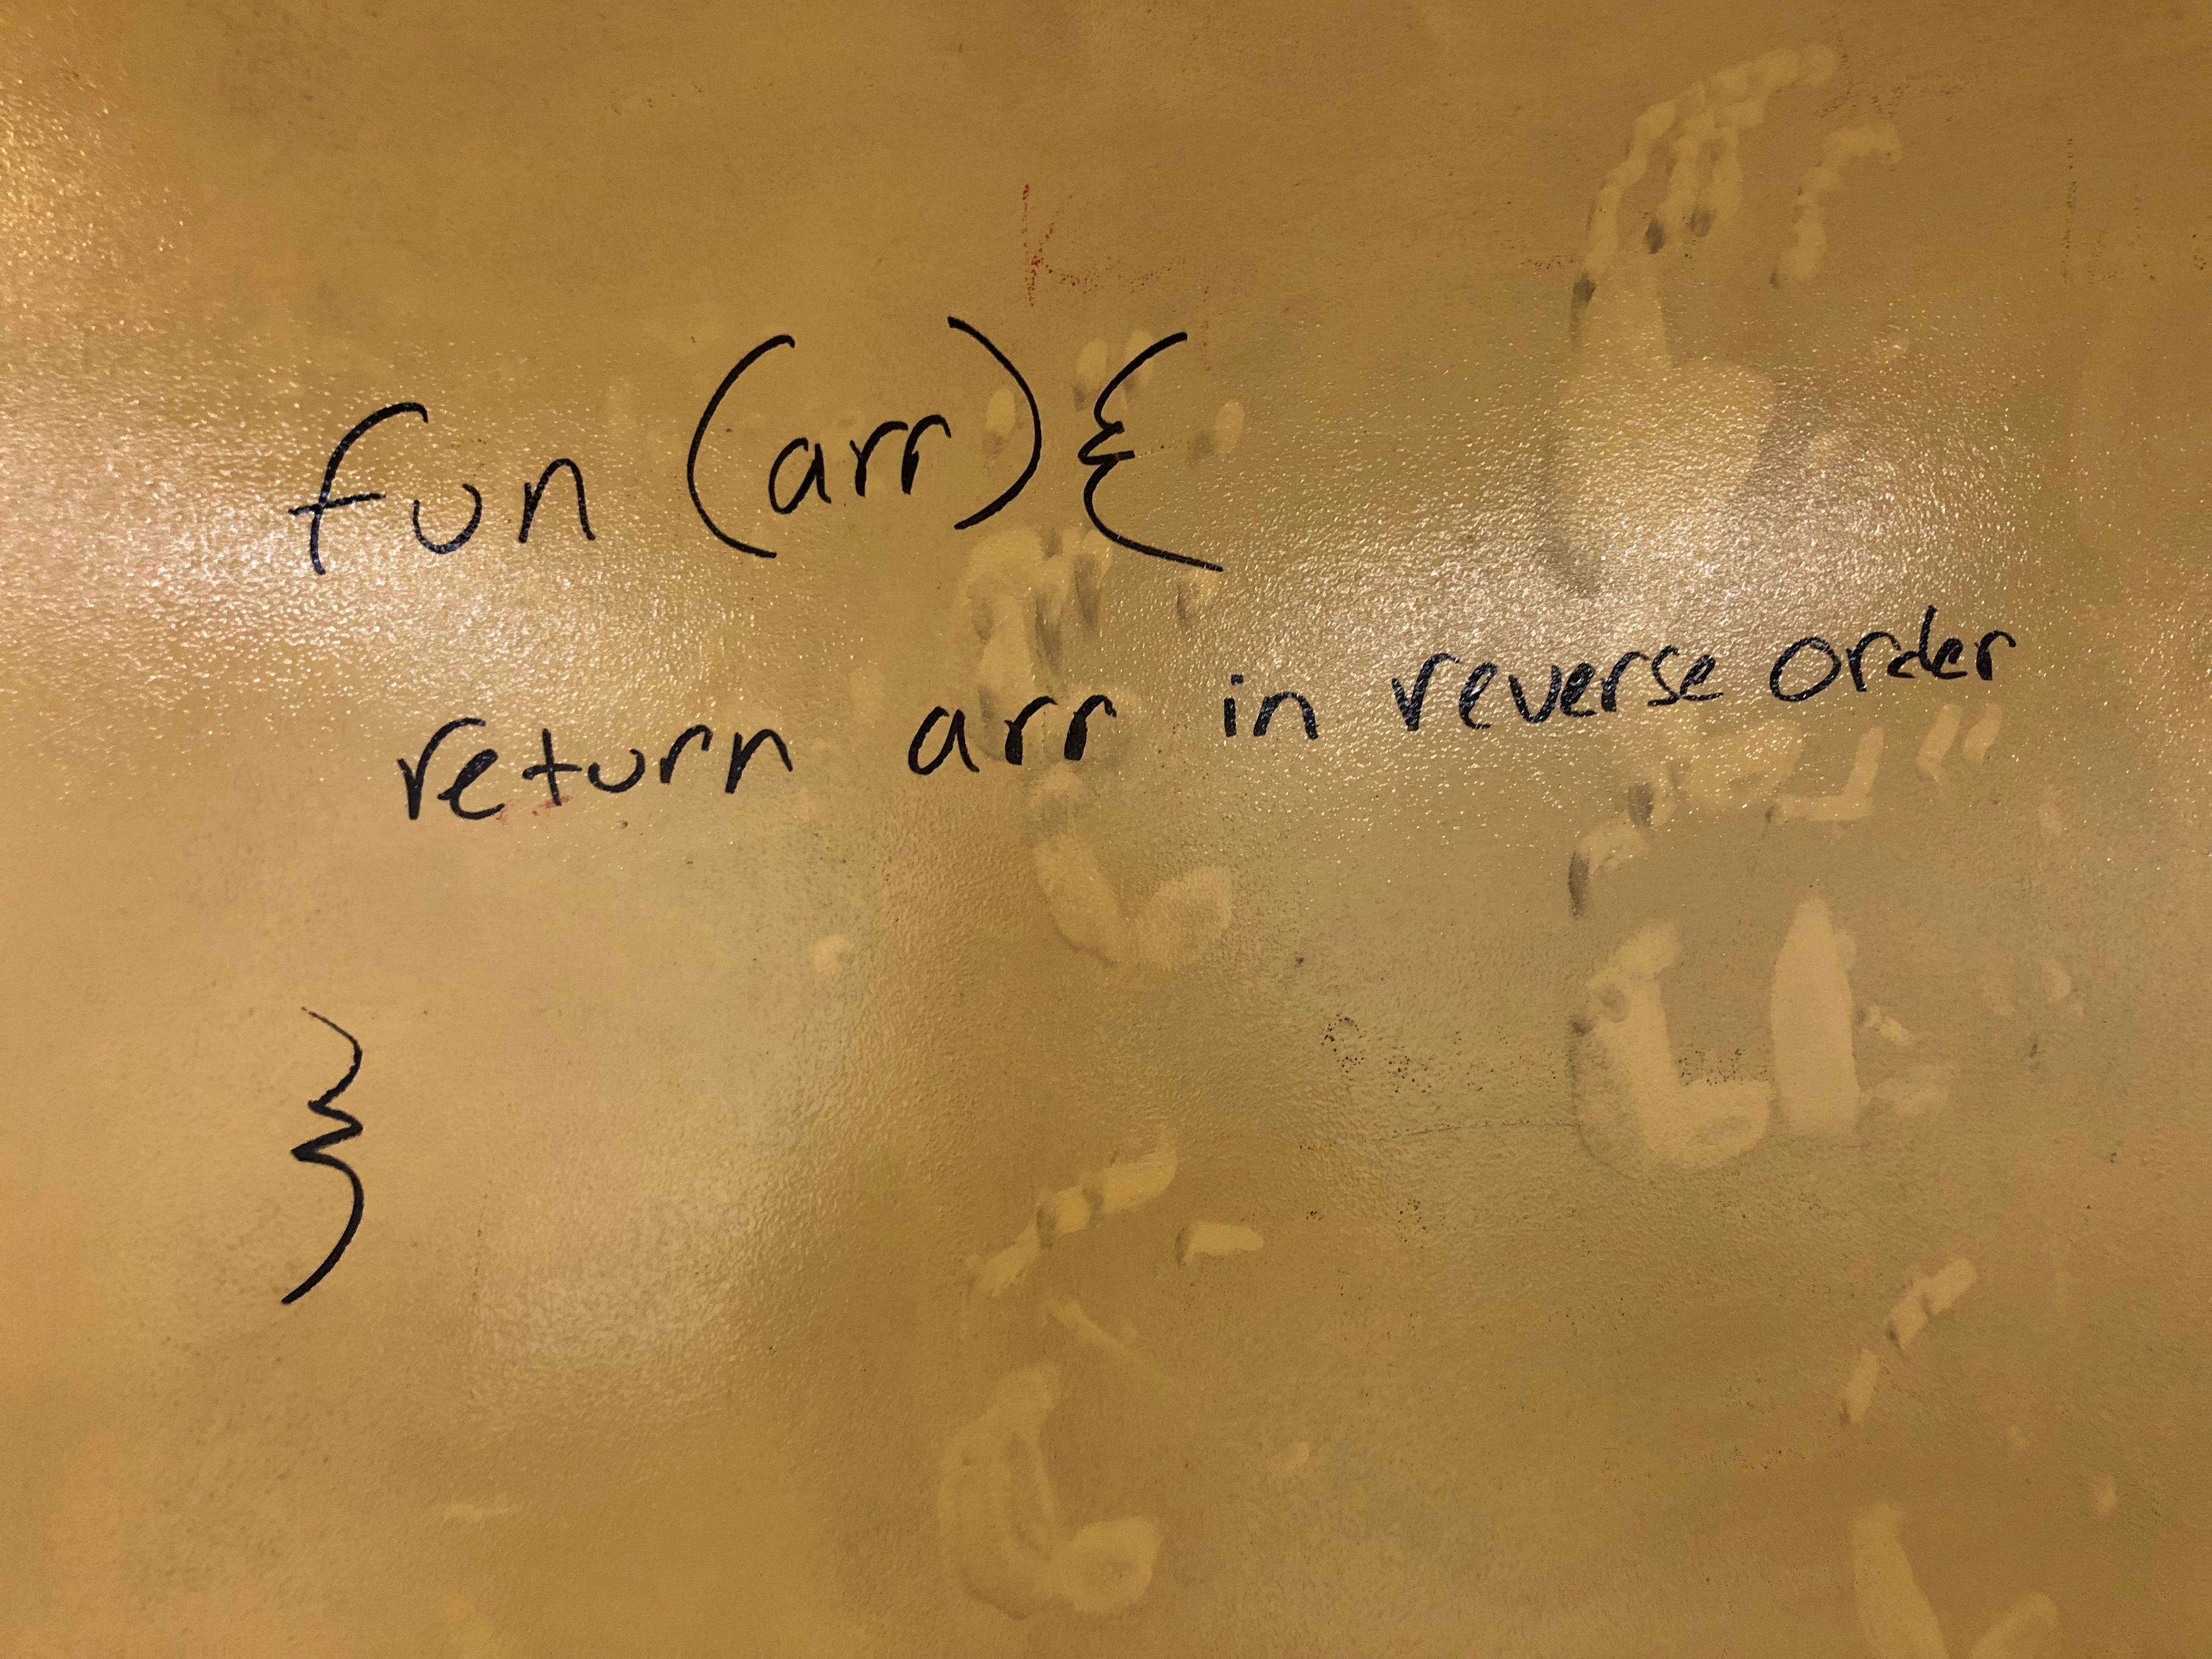 fun (arr){
return arr in reverse order
}